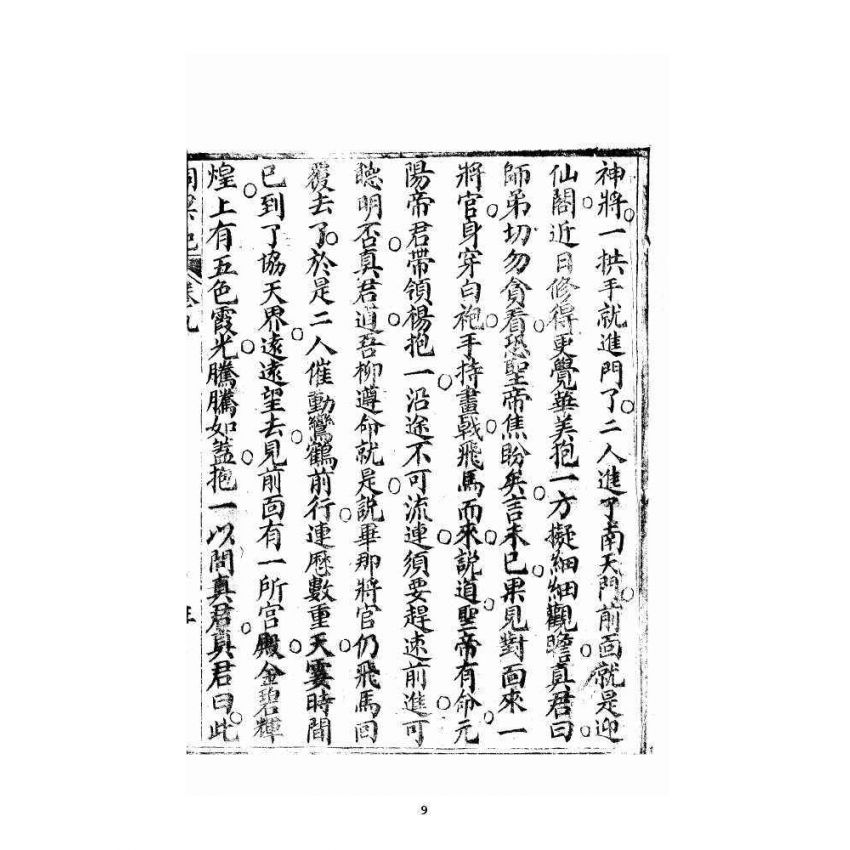 神將一拱手就進門了二人進了南天門前面就是迎
仙閣近日修得更覺華美抱一方擬細細觀瞻真君曰
師弟切勿貪看恐聖帝焦盼矣言未已果見對面來一
將官身穿白袍手持畫戟飛馬而來說道聖帝有命元
陽帝君帶領楊抱一沿途不可流連須要趕速前進可
聰明否真君道吾柳遵命就是說畢那將官仍飛馬回
覆去了於是二人催動鸞鶴前行連歷數重天霎時間
已到了協天界遠遠望去見前面有一所宮殿金碧輝
煌上有五色霞光騰騰如蓋抱一以問真君真君曰此
卷九
9